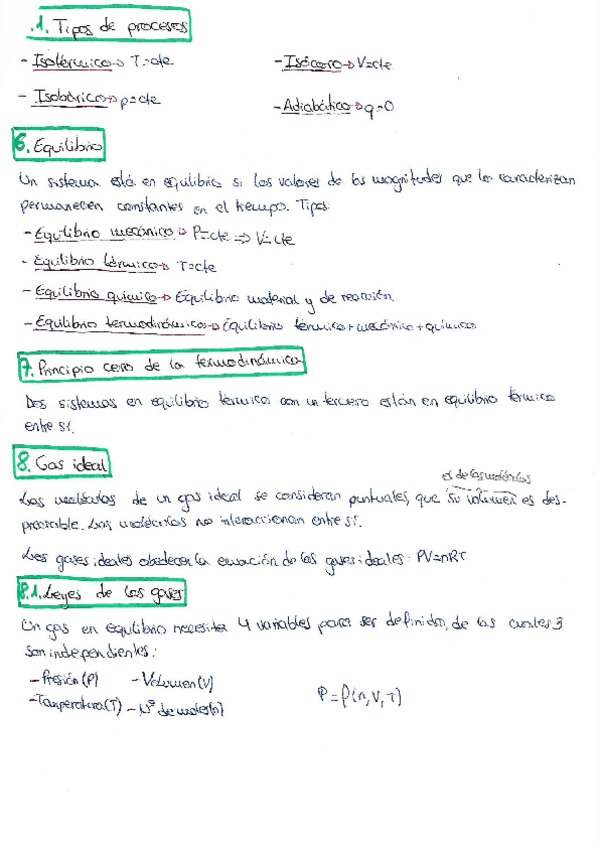 .1. Tipos de procesos
- Isotérmico → T=cte - Isócoro → V=cte
- Isobárico → p=cte - Adiabático → q=0
6. Equilibrio
Un sistema está en equilibrio si los valores de las magnitudes que lo caracterizan
permanecen constantes en el tiempo. Tipos:
- Equilibrio mecánico → P=cte => V=cte
- Equilibrio térmico → T=cte
- Equilibrio químico → Equilibrio material y de reacción.
- Equilibrio termodinámico → Equilibrio térmico + mecánico + químico
7. Principio cero de la termodinámica
Dos sistemas en equilibrio térmico con un tercero están en equilibrio térmico
entre sí.
8. Gas ideal
el de las moléculas
Las moléculas de un gas ideal se consideran puntuales, que su volumen es des-
preciable. Las moléculas no interaccionan entre sí.
Los gases ideales obedecen la ecuación de los gases ideales: PV=nRT
8.1. Leyes de los gases
Un gas en equilibrio necesita 4 variables para ser definido, de las cuales 3
son independientes:
- Presión (P) - Volumen (V)
- Temperatura (T) - Nº de moles (n) P = f(n, V, T)